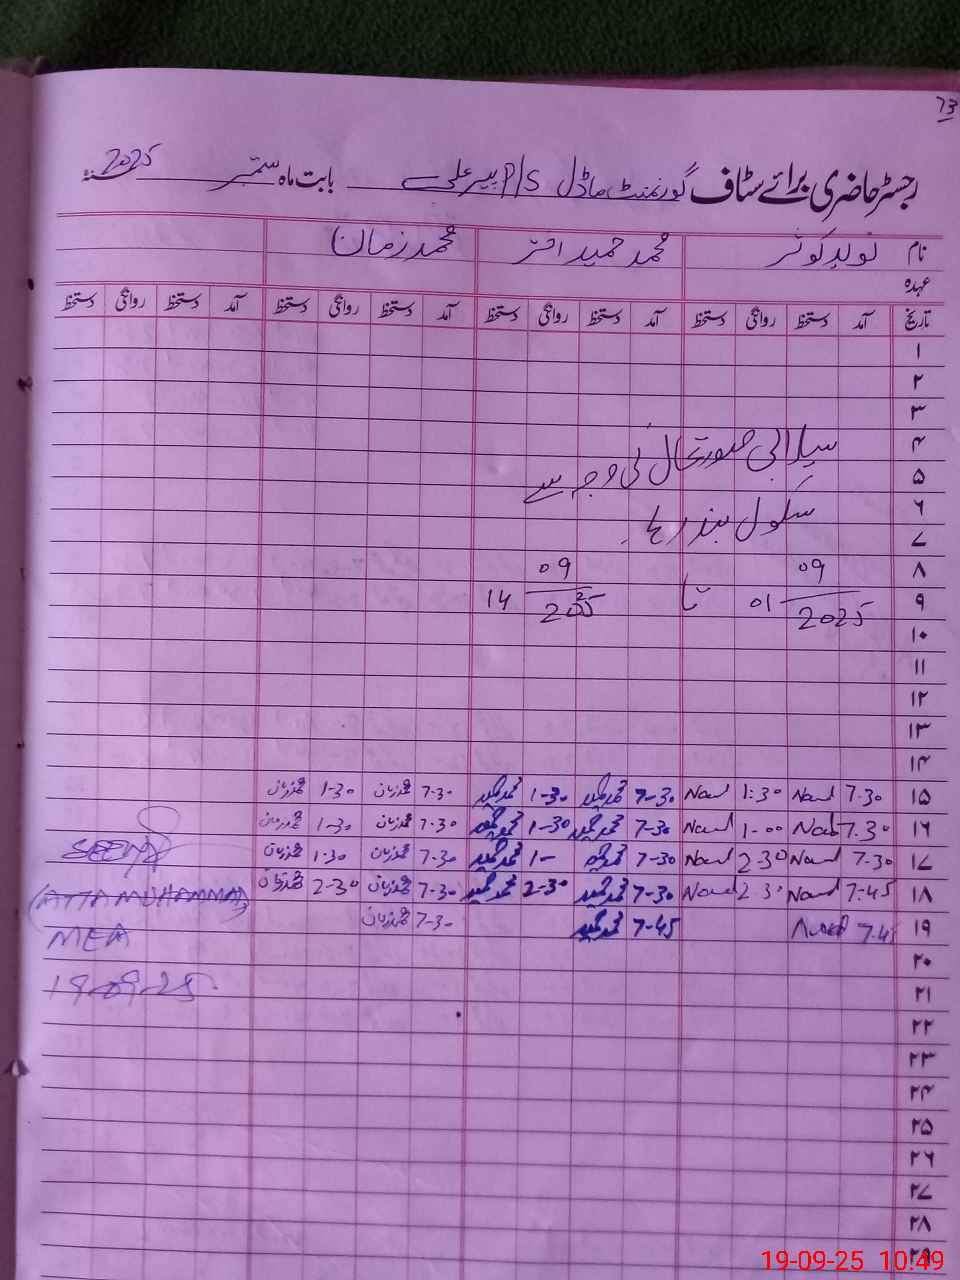 73
رجسٹر حاضری برائے سٹاف گورنمنٹ ماڈل P/S پیر علی بابت ماہ ستمبر سنہ 2025
نام محمد حمید اختر محمد زمان
عہدہ
تاریخ آمد دستخط روانگی دستخط آمد دستخط روانگی دستخط آمد دستخط روانگی دستخط روانگی دستخط
۱
۲
۳
۴ سیلابی صورتحال کی وجہ سے
۵
۶ سکول بند رہا
۷
۸ 09 09
۹ 01 2025 تا 14 2025
۱۰
۱۱
۱۲
۱۳
۱۴
۱۵ 7.30 Naul 1:30 Naul 7-30 محمد حمید 1-30 محمد حمید 7-30 محمد زمان 1-30 محمد زمان
۱۶ 7.30 Naul 1-00 Naul 7-30 محمد حمید 1-30 محمد حمید 7-30 محمد زمان 1-30 محمد زمان
۱۷ 7-30 Naul 2-30 Naul 7-30 محمد حمید 1- محمد حمید 7-30 محمد زمان 1-30 محمد زمان SEEN
۱۸ 7-45 Naul 2-30 Naul 7-30 محمد حمید 2-30 محمد حمید 7-30 محمد زمان 2-30 محمد زمان (ATTA MUHAMMAD)
۱۹ 7-45 7-45 محمد حمید 7-30 محمد زمان MEA
۲۰
۲۱ 19-09-25
۲۲
۲۳
۲۴
۲۵
۲۶
۲۷
۲۸
۲۹
19-09-25 10:49